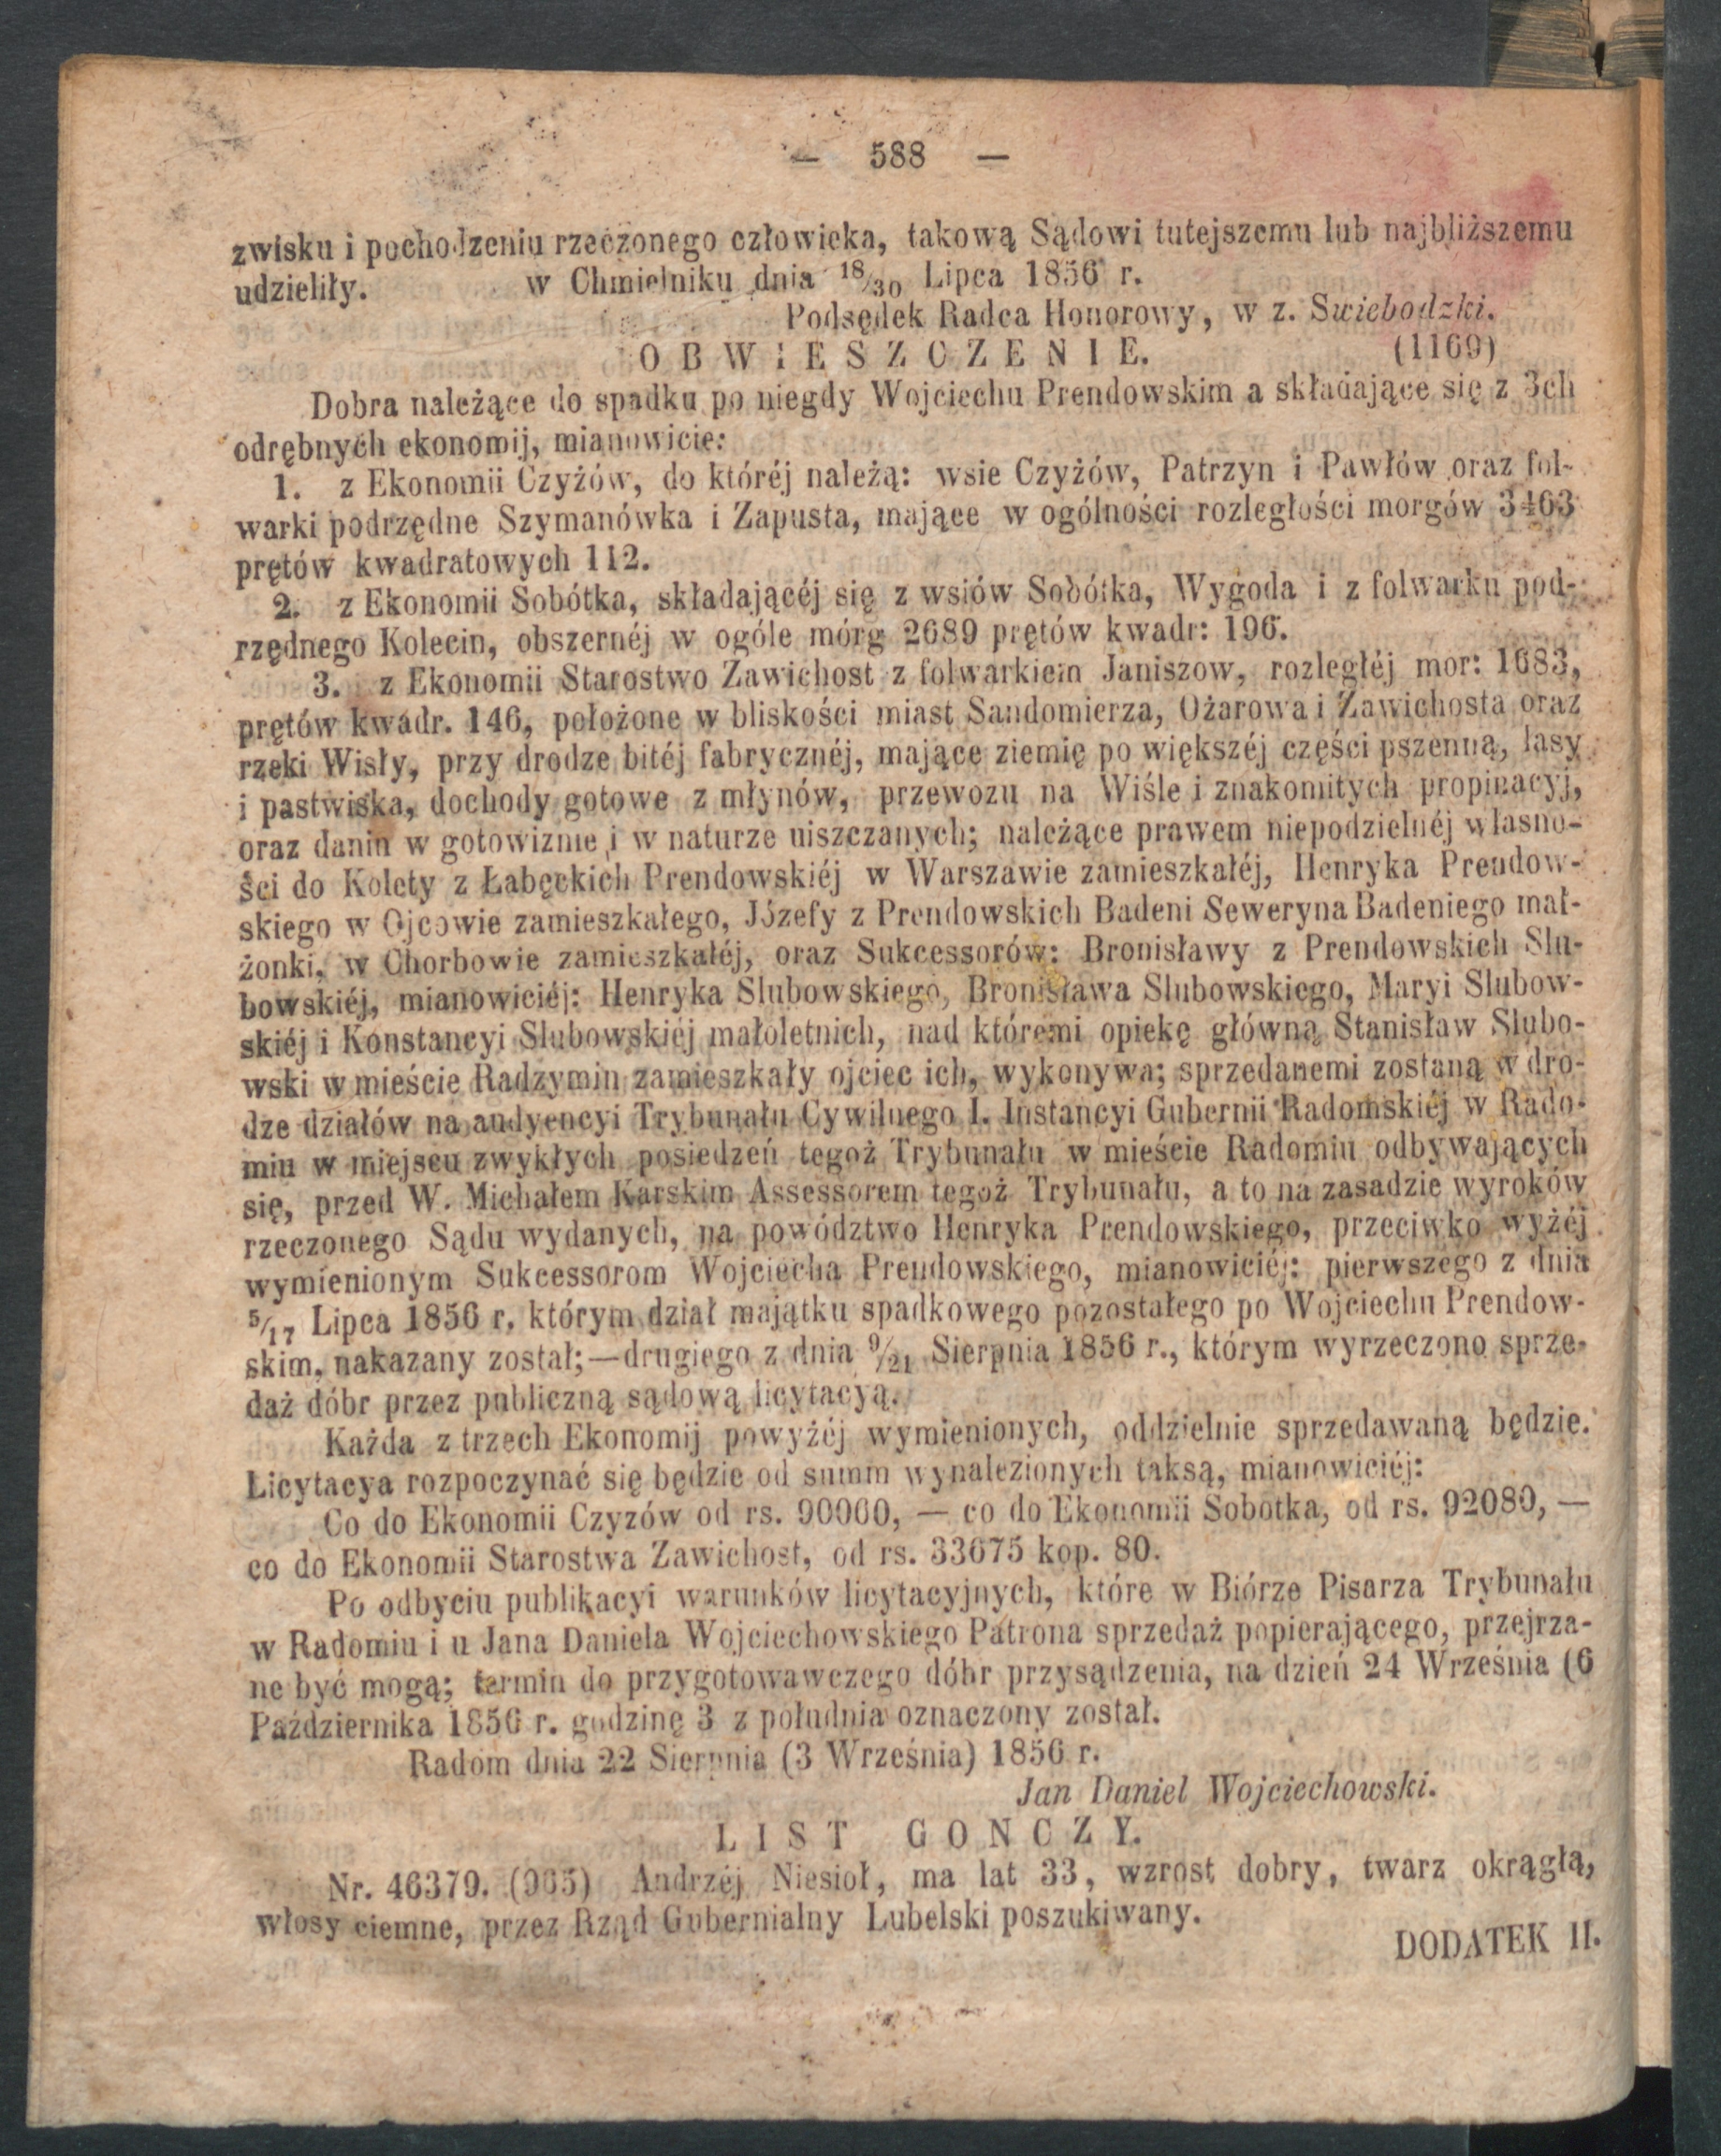 — 588 —
zwisku i pochodzeniu rzeczonego człowieka, takową Sądowi tutejszemu lub najbliższemu
udzieliły. w Chmielniku dnia 18/30 Lipca 1856 r.
Podsędek Radca Honorowy, w z. Swiebodzki.
OBWIESZCZENIE. (1169)
Dobra należące do spadku po niegdy Wojciechu Prendowskim a składające się z 3ch
odrębnych ekonomij, mianowicie:
1. z Ekonomii Czyżów, do któréj należą: wsie Czyżów, Patrzyn i Pawłów oraz fol-
warki podrzędne Szymanówka i Zapusta, mające w ogólności rozległości morgów 3463
prętów kwadratowych 112.
2. z Ekonomii Sobótka, składającéj się z wsiów Sobótka, Wygoda i z folwarku pod-
rzędnego Kolecin, obszernéj w ogóle mórg 2689 prętów kwadr: 196.
3. z Ekonomii Starostwo Zawichost z folwarkiem Janiszow, rozległéj mor: 1683,
prętów kwadr. 146, położone w bliskości miast Sandomierza, Ożarowa i Zawichosta oraz
rzeki Wisły, przy drodze bitéj fabrycznéj, mające ziemię po większéj części pszenną, lasy
i pastwiska, dochody gotowe z młynów, przewozu na Wiśle i znakomitych propinacyj,
oraz danin w gotowiznie i w naturze uiszczanych; należące prawem niepodzielnéj własno-
ści do Kolety z Łabęckich Prendowskiéj w Warszawie zamieszkałéj, Henryka Prendow-
skiego w Ojcowie zamieszkałego, Józefy z Prendowskich Badeni Seweryna Badeniego mał-
żonki, w Chorbowie zamieszkałéj, oraz Sukcessorów: Bronisławy z Prendowskich Slu-
bowskiéj, mianowiciéj: Henryka Slubowskiego, Bronisława Slubowskiego, Maryi Slubow-
skiéj i Konstancyi Slubowskiéj małoletnich, nad któremi opiekę główną Stanisław Slubo-
wski w mieście Radzymin zamieszkały ojciec ich, wykonywa; sprzedanemi zostaną w dro-
dze działów na audyencyi Trybunału Cywilnego I. Instancyi Gubernii Radomskiéj w Rado-
miu w miejscu zwykłych posiedzeń tegoż Trybunału w mieście Radomiu odbywających
się, przed W. Michałem Karskim Assessorem tegoż Trybunału, a to na zasadzie wyroków
rzeczonego Sądu wydanych, na powództwo Henryka Prendowskiego, przeciwko wyżéj
wymienionym Sukcessorom Wojciecha Prendowskiego, mianowiciéj: pierwszego z dnia
5/17 Lipca 1856 r. którym dział majątku spadkowego pozostałego po Wojciechu Prendow-
skim, nakazany został;—drugiego z dnia 9/21 Sierpnia 1856 r., którym wyrzeczono sprze-
daż dóbr przez publiczną sądową licytacyą.
Każda z trzech Ekonomij powyżéj wymienionych, oddzielnie sprzedawaną będzie.
Licytacya rozpoczynać się będzie od summ wynalezionych taksą, mianowiciéj:
Co do Ekonomii Czyzów od rs. 90000, — co do Ekonomii Sobotka, od rs. 92080, —
co do Ekonomii Starostwa Zawichost, od rs. 33675 kop. 80.
Po odbyciu publikacyi warunków licytacyjnych, które w Biórze Pisarza Trybunału
w Radomiu i u Jana Daniela Wojciechowskiego Patrona sprzedaż popierającego, przejrza-
ne być mogą; termin do przygotowawczego dóbr przysądzenia, na dzień 24 Września (6
Października 1856 r. godzinę 3 z południa oznaczony został.
Radom dnia 22 Sierpnia (3 Września) 1856 r.
Jan Daniel Wojciechowski.
LIST GONCZY.
Nr. 46379. (965) Andrzéj Niesioł, ma lat 33, wzrost dobry, twarz okrągłą,
włosy ciemne, przez Rząd Gubernialny Lubelski poszukiwany.
DODATEK II.